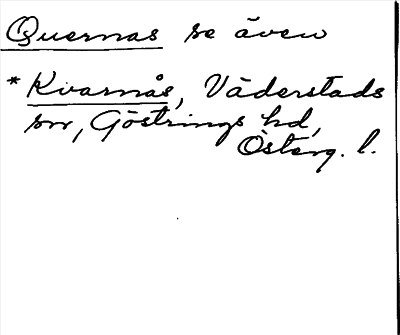 Quernas se även
* Kvarnås, Väderstads
sn, Göstrings hd,
Österg. l.